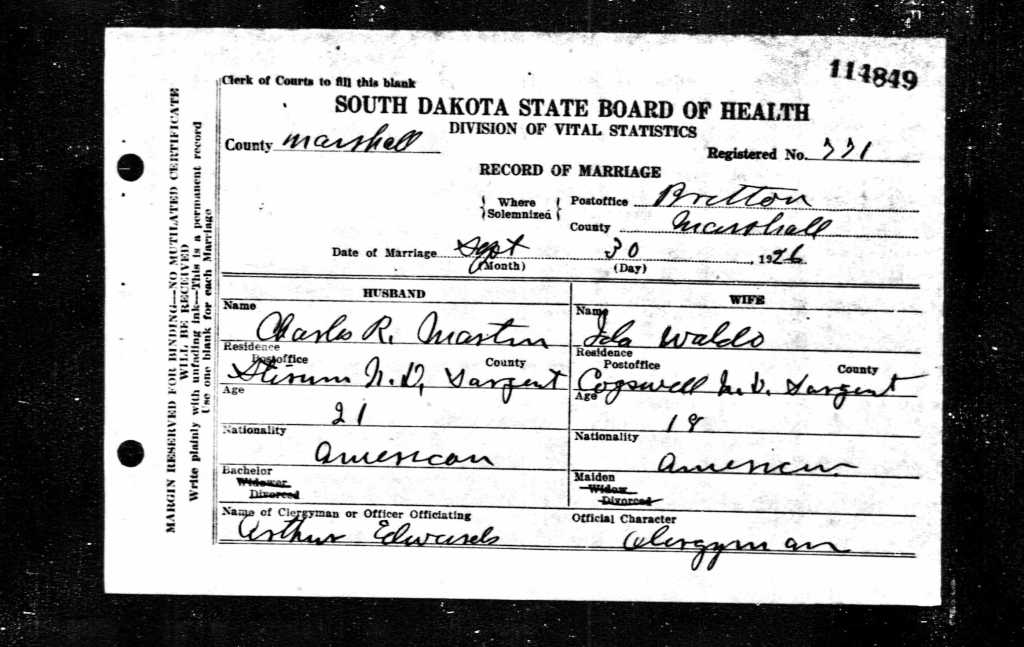 114849
Clerk of Courts to fill this blank
SOUTH DAKOTA STATE BOARD OF HEALTH
DIVISION OF VITAL STATISTICS
County Marshall
Registered No. 771
RECORD OF MARRIAGE
Where Solemnized
Postoffice Britton
County Marshall
Date of Marriage Sept 30, 1926
(Month) (Day)
HUSBAND
Name
Charles R. Martin
Residence
Postoffice County
Stirum N.D, Sargent
Age
21
Nationality
American
Bachelor
Widower
Divorced
Name of Clergyman or Officer Officiating
Arthur Edwards
WIFE
Name
Ida Waldo
Residence
Postoffice County
Cogswell N.D. Sargent
Age
18
Nationality
American
Maiden
Widow
Divorced
Official Character
Clergyman
MARGIN RESERVED FOR BINDING—NO MUTILATED CERTIFICATE
WILL BE RECEIVED
Write plainly with unfading ink—This is a permanent record
Use one blank for each Marriage